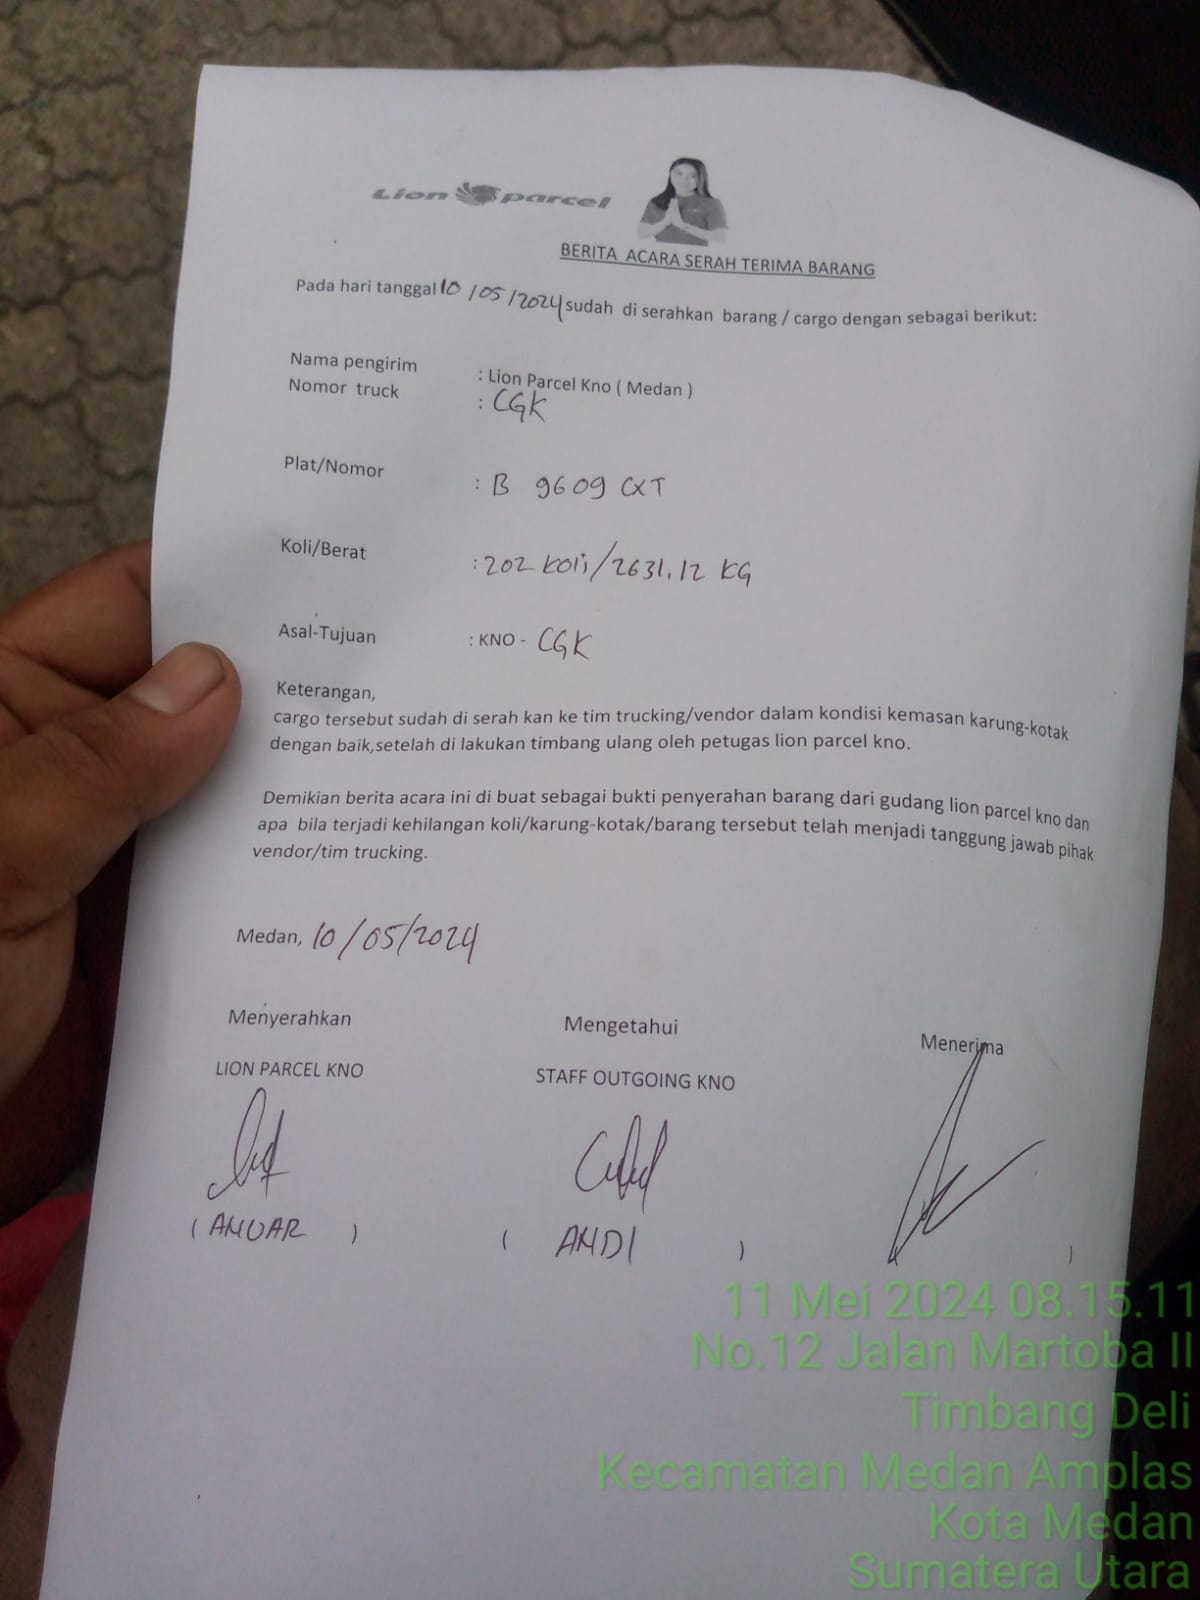 Lion parcel
BERITA ACARA SERAH TERIMA BARANG
Pada hari tanggal 10/05/2024 sudah di serahkan barang / cargo dengan sebagai berikut:
Nama pengirim : Lion Parcel Kno ( Medan )
Nomor truck : CGK
Plat/Nomor : B 9609 CXT
Koli/Berat : 202 Koli/2631,12 KG
Asal-Tujuan : KNO - CGK
Keterangan,
cargo tersebut sudah di serah kan ke tim trucking/vendor dalam kondisi kemasan karung-kotak
dengan baik,setelah di lakukan timbang ulang oleh petugas lion parcel kno.
Demikian berita acara ini di buat sebagai bukti penyerahan barang dari gudang lion parcel kno dan
apa bila terjadi kehilangan koli/karung-kotak/barang tersebut telah menjadi tanggung jawab pihak
vendor/tim trucking.
Medan, 10/05/2024
Menyerahkan Mengetahui Menerima
LION PARCEL KNO STAFF OUTGOING KNO
( ANUAR ) ( ANDI ) )
11 Mei 2024 08.15.11
No.12 Jalan Martoba II
Timbang Deli
Kecamatan Medan Amplas
Kota Medan
Sumatera Utara